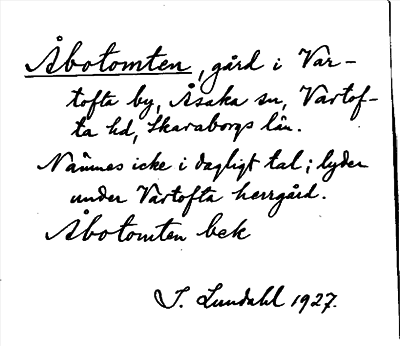 Åbotomten, gård i Var-
tofta by, Åsaka sn, Vartof-
ta hd, Skaraborgs län.
Nämnes icke i dagligt tal; lyder
under Vartofta herrgård.
Åbotomten bek
S. Lundahl 1927.